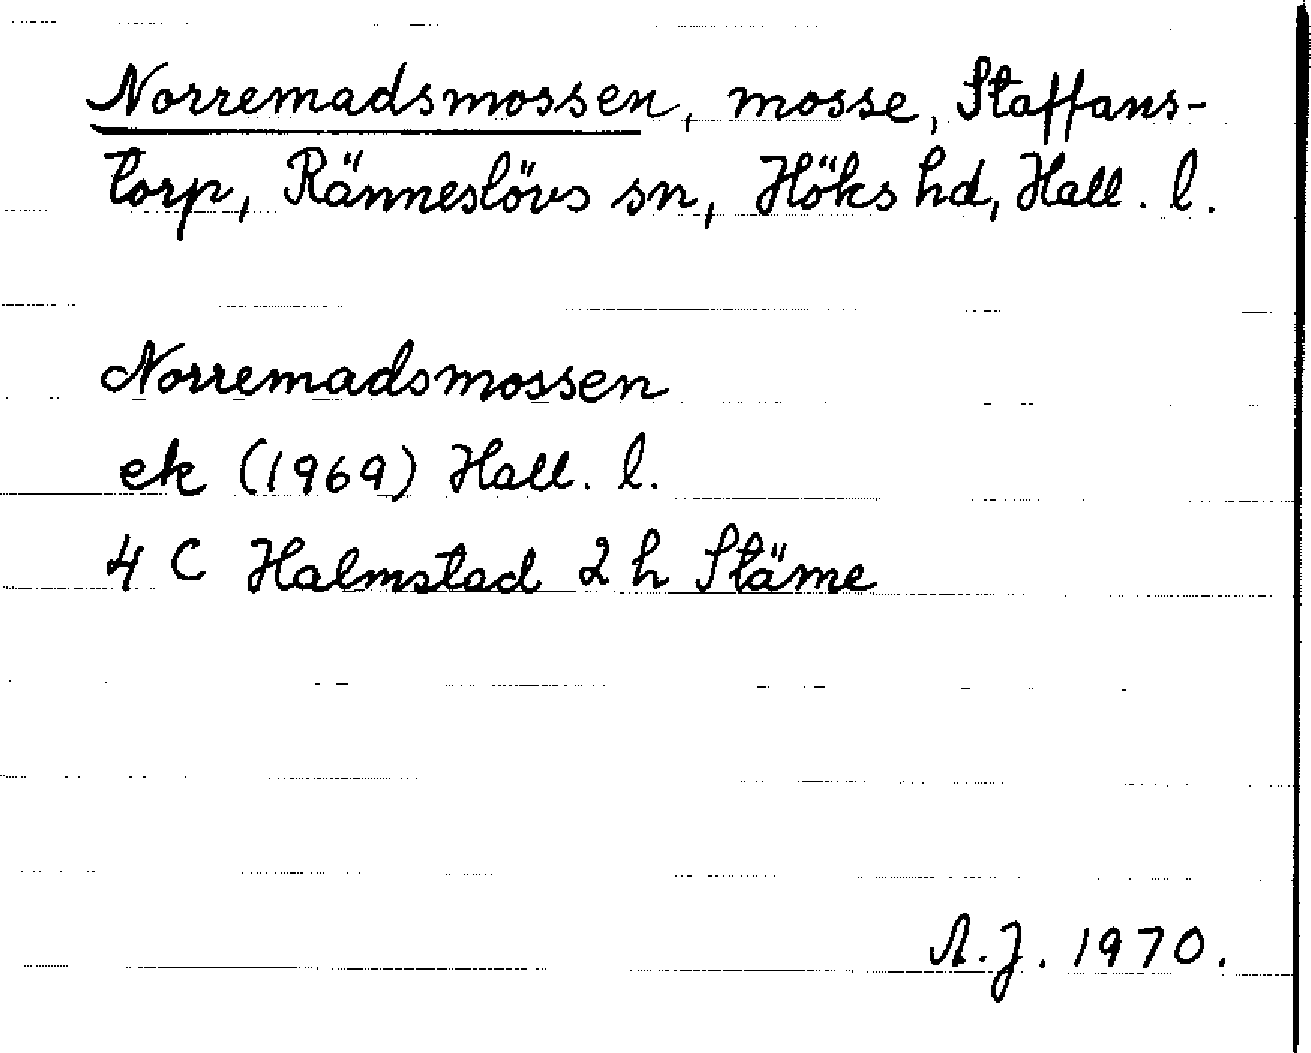 Norremadsmossen, mosse, Staffans-
torp, Ränneslövs sn, Höks hd, Hall. l.
Norremadsmossen
ek (1969) Hall. l.
4 C Halmstad 2 h Stäme
A.J. 1970.